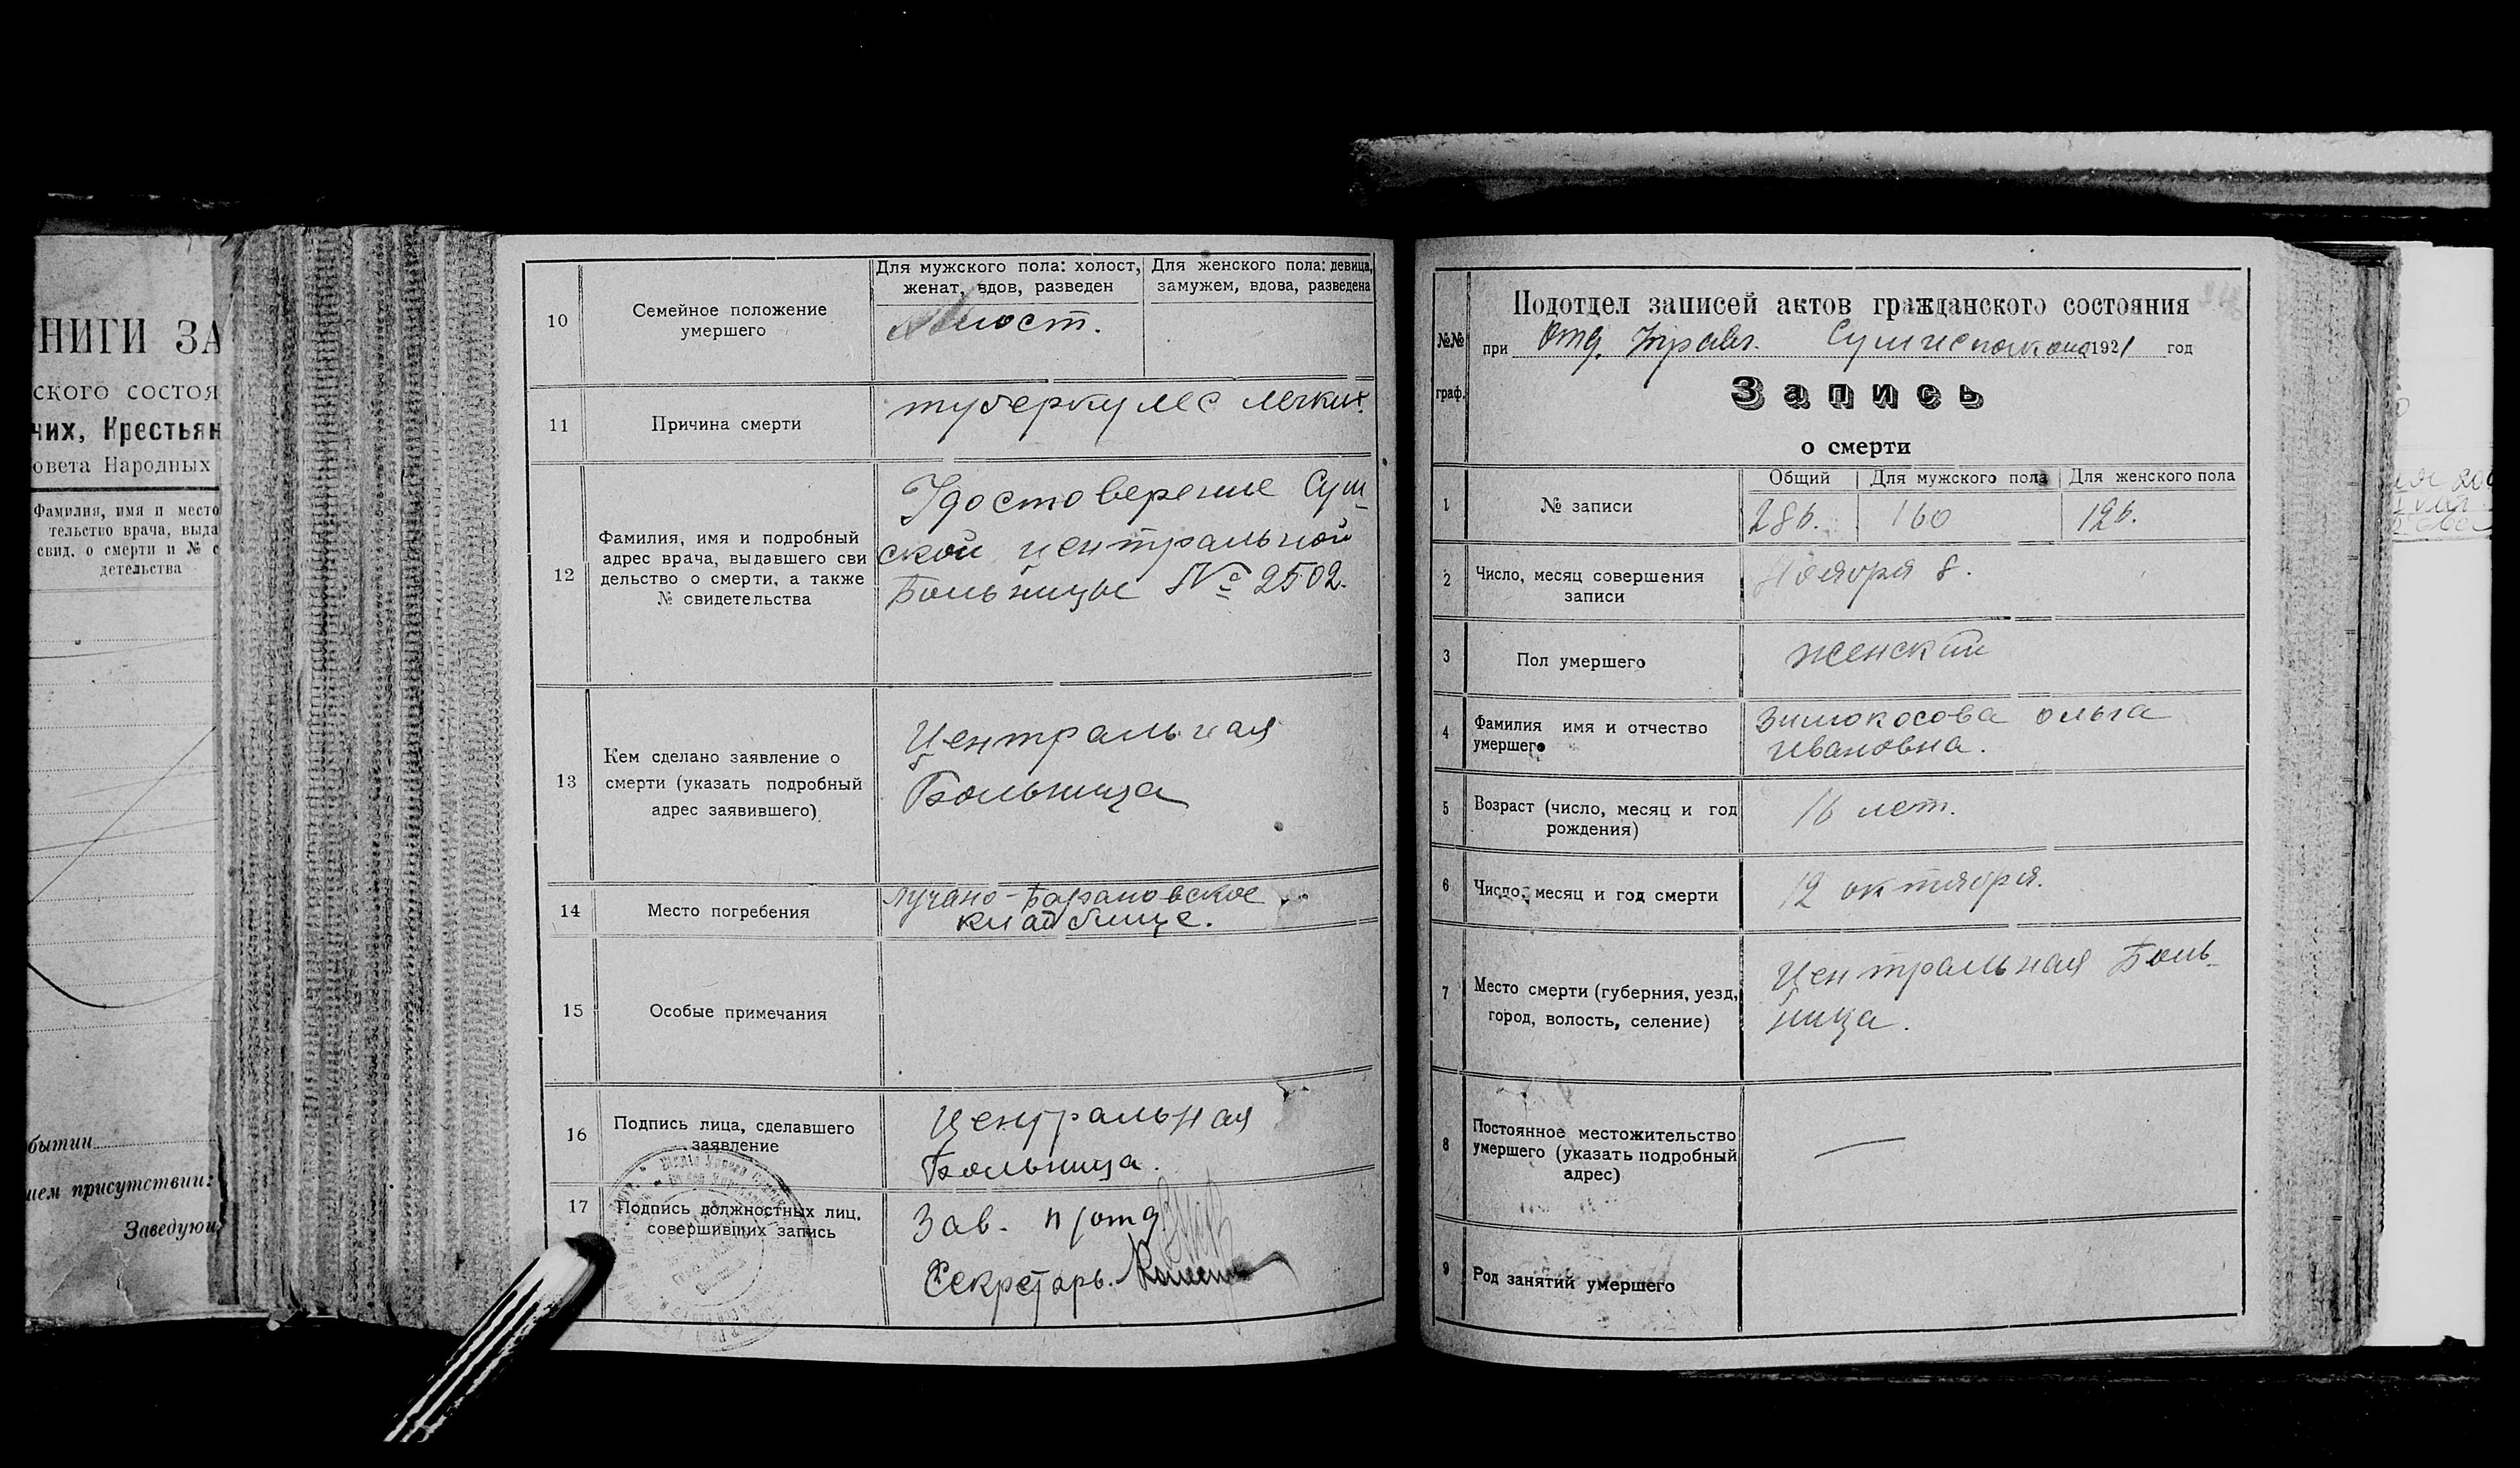 НИГИ ЗА
ского состоя
чих, Крестьян
овета Народных
Фамилия, имя и место
тельство врача, выда
свид. о смерти и № с
детельства
бытии
ием присутствии:
Заведую
10
Семейное положение
умершего
Для мужского пола: холост,
женат, вдов, разведен
Для женского пола: девица,
замужем, вдова, разведена
Холост.
11
Причина смерти
туберкулес легких.
12
Фамилия, имя и подробный
адрес врача, выдавшего сви
дельство о смерти, а также
№ свидетельства
Удостоверение Сум
ской центральной
Больницы № 2502.
13
Кем сделано заявление о
смерти (указать подробный
адрес заявившего)
Центральная
Больница
14
Место погребения
Лучано-Барановское
кладбище.
15
Особые примечания
16
Подпись лица, сделавшего
заявление
Центральная
Больница.
17
Подпись должностных лиц,
совершивших запись
Зав. п/отд
Секретарь.
Подотдел записей актов гражданского состояния
№№
граф.
при Отд. Управл. Сумисполкома 1921 год
Запись
о смерти
1
№ записи
Общий
Для мужского пола
Для женского пола
286.
160
126.
2
Число, месяц совершения
записи
Ноября 8.
3
Пол умершего
женский
4
Фамилия имя и отчество
умершего
Зимокосова Ольга
Ивановна.
5
Возраст (число, месяц и год
рождения)
16 лет.
6
Число, месяц и год смерти
12 октября.
7
Место смерти (губерния, уезд,
город, волость, селение)
Центральная Боль-
ница.
8
Постоянное местожительство
умершего (указать подробный
адрес)
—
9
Род занятий умершего